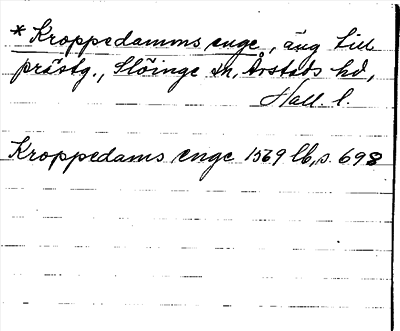 * Kroppedamms enge, äng till
prästg., Slöinge sn, Årstads hd,
Hall. l.
Kroppedams enge 1569 lb, s. 698